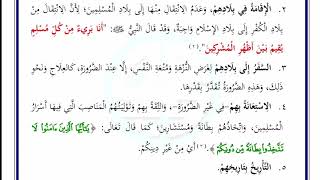 ٢. الإِقَامَةُ فِي بِلَادِهِمْ، وَعَدَمُ الِانْتِقَالِ مِنْهَا إِلَى بِلَادِ الْمُسْلِمِينَ؛ لِأَنَّ الِانْتِقَالَ مِنْ
بِلَادِ الْكُفْرِ إِلَى بِلَادِ الإِسْلَامِ وَاجِبَةٌ، وَقَدْ قَالَ النَّبِيُّ ﷺ: "أَنَا بَرِيءٌ مِنْ كُلِّ مُسْلِمٍ
يُقِيمُ بَيْنَ أَظْهُرِ الْمُشْرِكِينَ".(٢)
٣. السَّفَرُ إِلَى بِلَادِهِمْ لِغَرَضِ النُّزْهَةِ وَمُتْعَةِ النَّفْسِ، إِلَّا عِنْدَ الضَّرُورَةِ، كَالْعِلَاجِ وَنَحْوِ
ذَلِكَ، وَهَذِهِ الضَّرُورَةُ تُقَدَّرُ بِقَدْرِهَا.
٤. الِاسْتِعَانَةُ بِهِمْ –فِي غَيْرِ الضَّرُورَةِ–، وَالثِّقَةُ بِهِمْ وَتَوْلِيَتُهُمُ الْمَنَاصِبَ الَّتِي فِيهَا أَسْرَارُ
الْمُسْلِمِينَ، وَاتِّخَاذُهُمْ بِطَانَةً وَمُسْتَشَارِينَ؛ كَمَا قَالَ تَعَالَى: ﴿يَٰٓأَيُّهَا ٱلَّذِينَ ءَامَنُوا۟ لَا
تَتَّخِذُوا۟ بِطَانَةً مِّن دُونِكُمْ﴾(٣) أَيْ مِنْ غَيْرِ دِينِكُمْ.
٥. التَّأْرِيخُ بِتَارِيخِهِمْ.